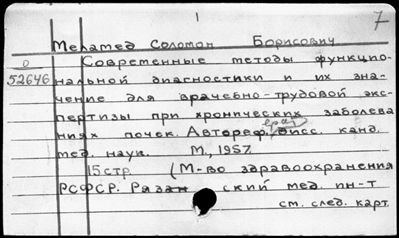 7
Меламед Соломон Борисович
D
Современные методы функцио-
52646
нальной диагностики и их зна-
чение для врачебно-трудовой экс-
пертизы при хронических заболева
ниях почек. Автореф. дисс. канд.
мед. наук. М., 1957.
15 стр. (М-во здравоохранения
РСФСР. Рязанский мед. ин-т
см. след. карт.